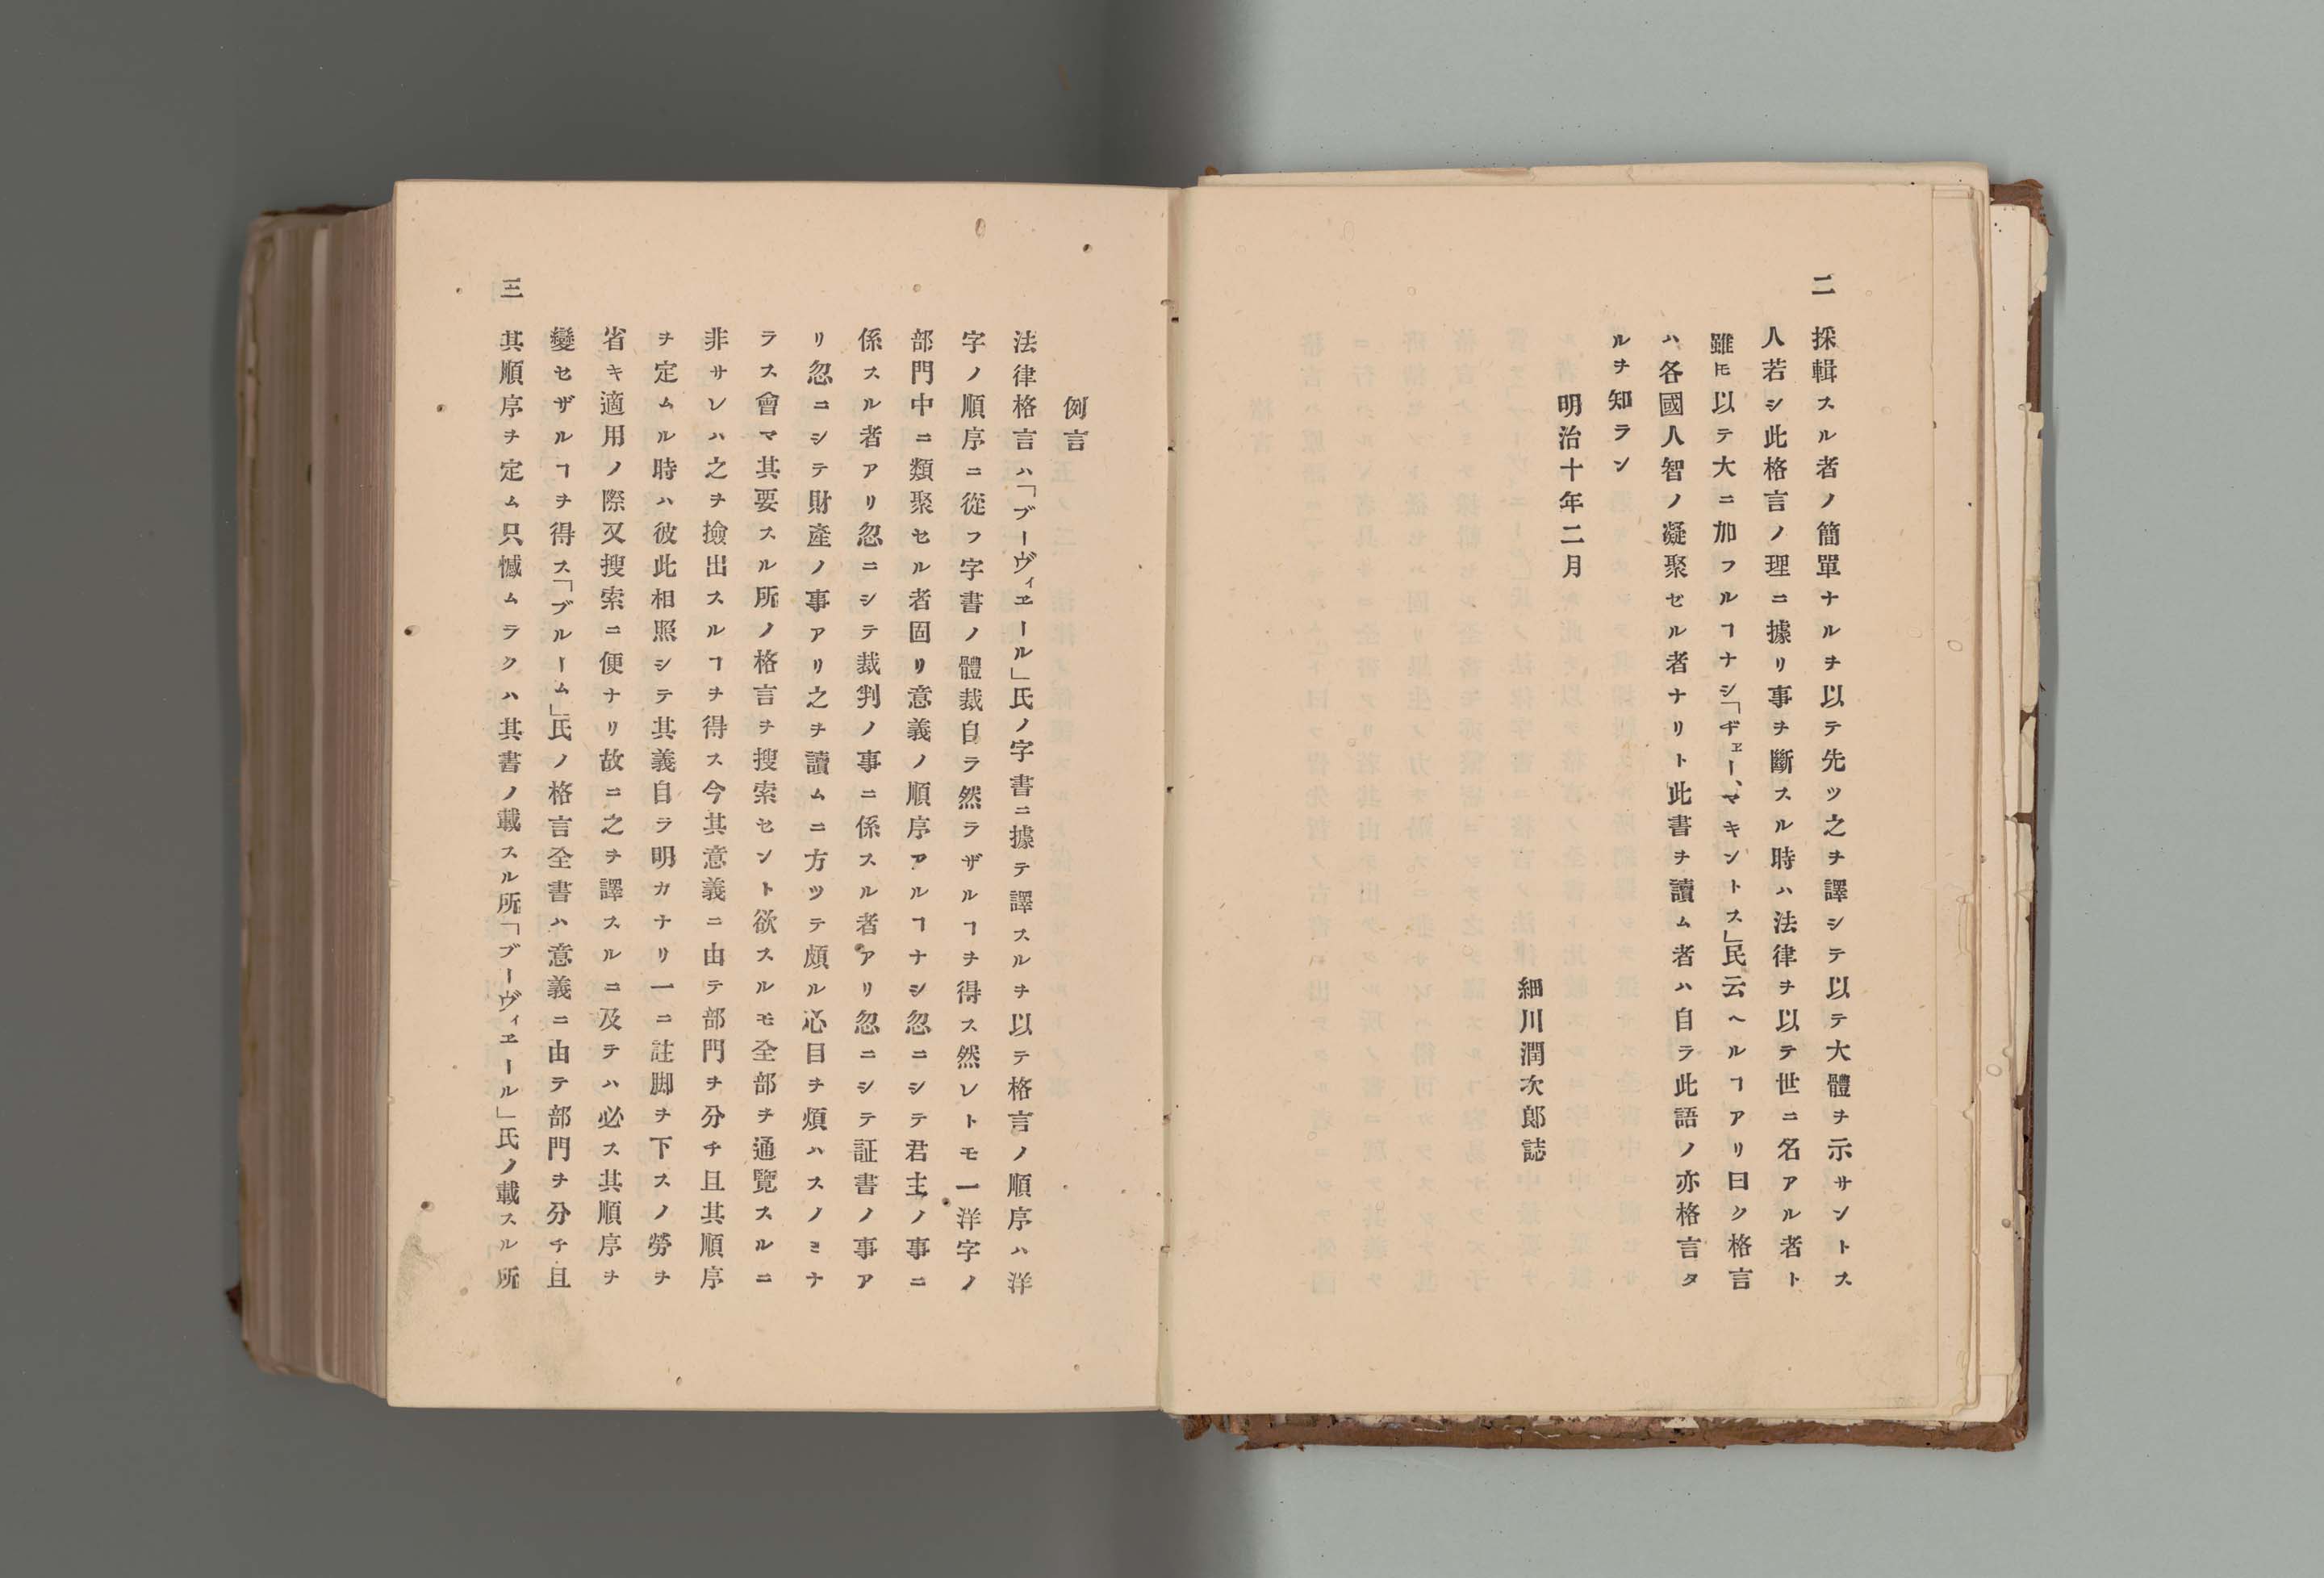 二
採輯スル者ノ簡單ナルヲ以テ先ツ之ヲ譯シテ以テ大體ヲ示サントス
人若シ此格言ノ理ニ據リ事ヲ斷スル時ハ法律ヲ以テ世ニ名アル者ト
雖𪜈以テ大ニ加フルヿナシ「ヂェー、マキントス」民云ヘルヿアリ曰ク格言
ハ各國人智ノ凝聚セル者ナリト此書ヲ讀ム者ハ自ラ此語ノ亦格言タ
ルヲ知ラン
明治十年二月
細川潤次郎誌
例言
法律格言ハ「ブーヴィエール」氏ノ字書ニ據テ譯スルヲ以テ格言ノ順序ハ洋
字ノ順序ニ從フ字書ノ體裁自ラ然ラザルヿヲ得ス然レトモ一洋字ノ
部門中ニ類聚セル者固リ意義ノ順序アルヿナシ忽ニシテ君主ノ事ニ
係スル者アリ忽ニシテ裁判ノ事ニ係スル者アリ忽ニシテ証書ノ事ア
リ忽ニシテ財產ノ事アリ之ヲ讀ムニ方ツテ頗ル心目ヲ煩ハスノミナ
ラス會マ其要スル所ノ格言ヲ搜索セント欲スルモ全部ヲ通覽スルニ
非サレハ之ヲ撿出スルヿヲ得ス今其意義ニ由テ部門ヲ分チ且其順序
ヲ定ムル時ハ彼此相照シテ其義自ラ明カナリ一ニ註脚ヲ下スノ勞ヲ
省キ適用ノ際又搜索ニ便ナリ故ニ之ヲ譯スルニ及テハ必ス其順序ヲ
變セザルヿヲ得ス「ブルーム」氏ノ格言全書ハ意義ニ由テ部門ヲ分チ且
三
其順序ヲ定ム只憾ムラクハ其書ノ載スル所「ブーヴィエール」氏ノ載スル所